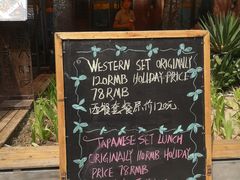 WESTERN SET ORIGINALLY
120RMB HOLIDAY PRICE
78RMB
西餐套餐原价120元
JAPANESE SET LUNCH
ORIGINALLY 110RMB HOLIDAY
PRICE 78RMB